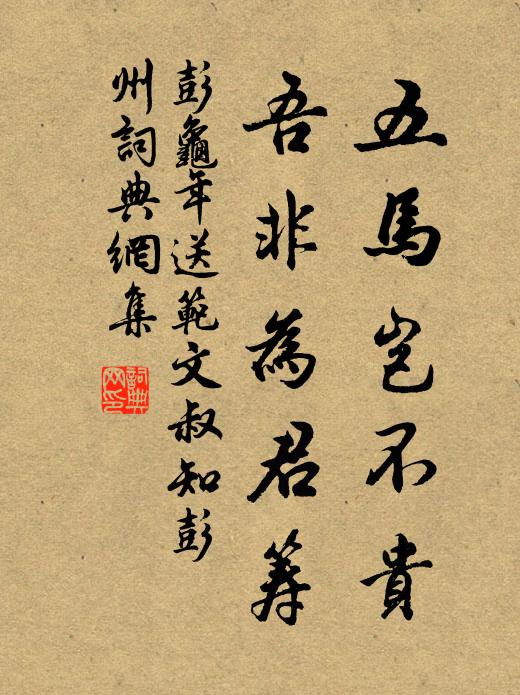 五馬豈不貴
吾非為君筭
彭龜年送範文叔知彭
州詞典網集
詞典
网印